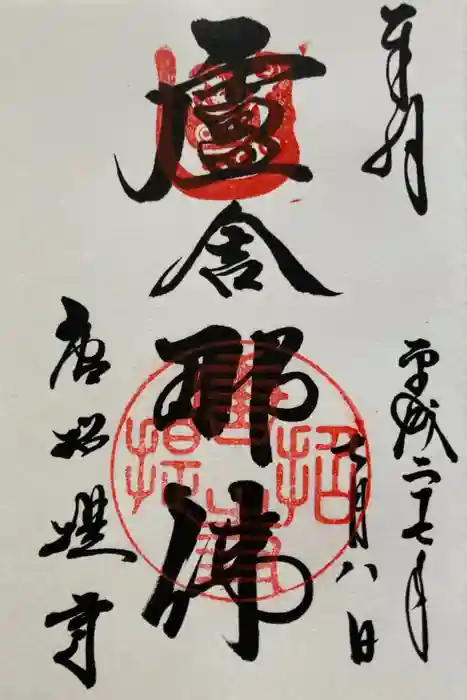 奉拝
平成二十七年
六月八日
盧舎那佛
唐招提寺